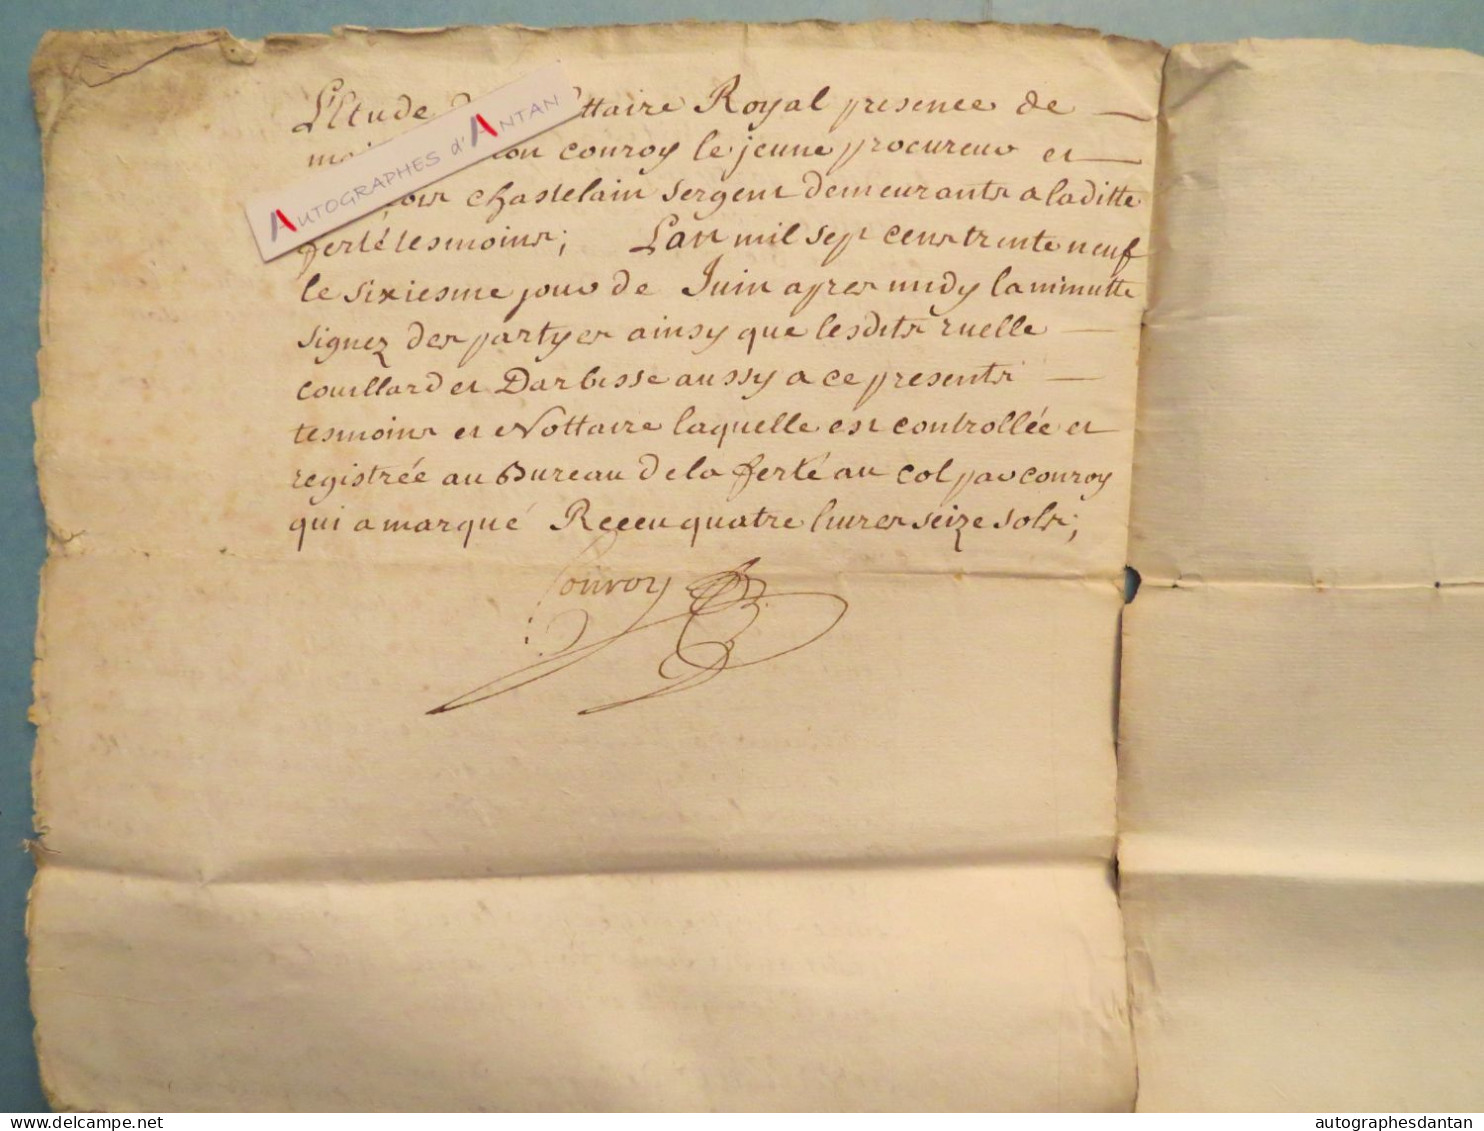 L'Etude ttaire Royal presence de
couroy le jeune procureur et
chastelain sergent demeurants a laditte
ferté tesmoins; L'an mil sept cens trente neuf
le sixiesme jour de Juin apres midy la minutte
signez des partyes ainsy que lesdits ruelle
couillard et Darbisse aussy a ce presents
tesmoins et Nottaire laquelle est controllée et
registrée au Bureau de la ferté au col par couroy
qui a marqué Receu quatre livres seize sols;
Couroy
AUTOGRAPHES d'ANTAN
delcampe.net
autographesdantan